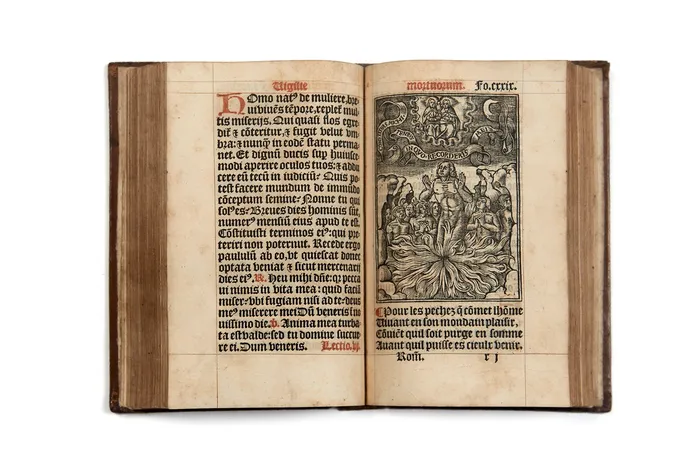 Vigilie
HOmo nat⁹ de muliere, bre
ui viuēs tēpore, replet̄ mul
tis miserijs. Qui quasi flos egre
dit̄ ⁊ cōteritur, ⁊ fugit velut vm
bra: ⁊ nunq̄ in eodē statu perma
net. Et dignū ducis sup huiusce
modi aperire oculos tuos: ⁊ addu
cere eū tecū in iudiciū: Quis po
test facere mundum de immūdo
cōceptum semine: Nonne tu qui
sol⁹es: Breues dies hominis sūt,
numer⁹ mensiū eius apud te est.
Cōstituisti terminos ei⁹: qui pre
teriri non poternut. Recede ergo
paululū ab eo, vt quiescat donec
optata veniat ⁊ sicut mercenarij
dies ei⁹. ℟. Heu mihi dñe: q̄ pecca
ui nimis in vita mea: quid faciā
miser: vbi fugiam nisi ad te: deus
me⁹ miserere mei Dū veneris in no
uissimo die. ℣. Anima mea turba
ta est valde: sed tu domine succur
re ei. Dum veneris. Lectio.vj.
mortuorum. Fo.cxxix.
RECORDERIS
Pour les pechez q̄ cōmet lhōme
Viuant en son mondain plaisir,
Cōuiēt quil soit purge en somme
Auant quil puisse es cieulx venir.
Rom. r j